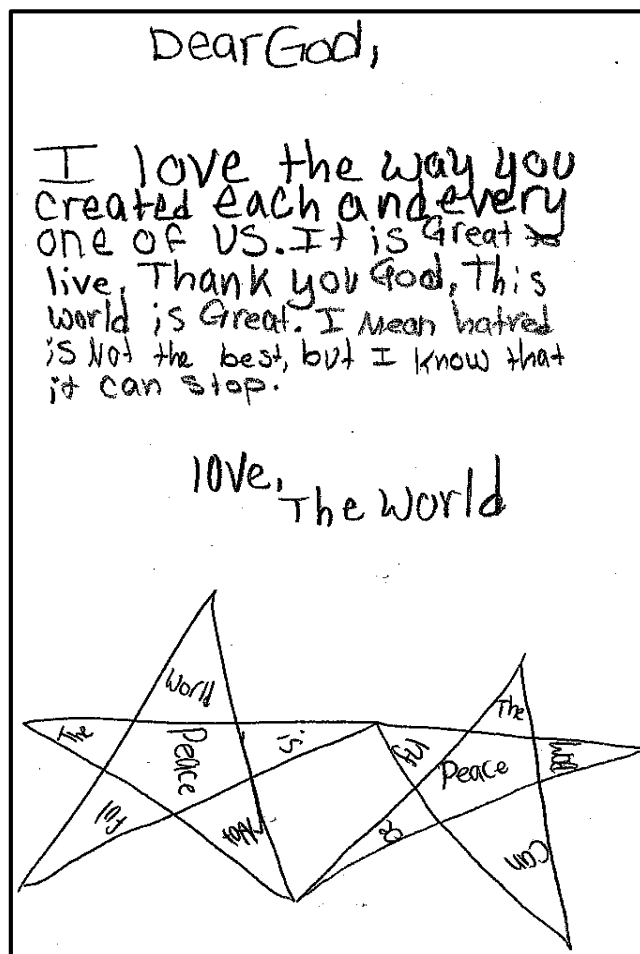 Dear God,
I love the way you
created each and every
one of us. It is Great to
live. Thank you God, This
world is Great. I Mean hatred
is Not the best, but I know that
it can stop.
love,
The World
World
The
Peace
is
ful
Not
The
Peace
World
ful
Be
Can